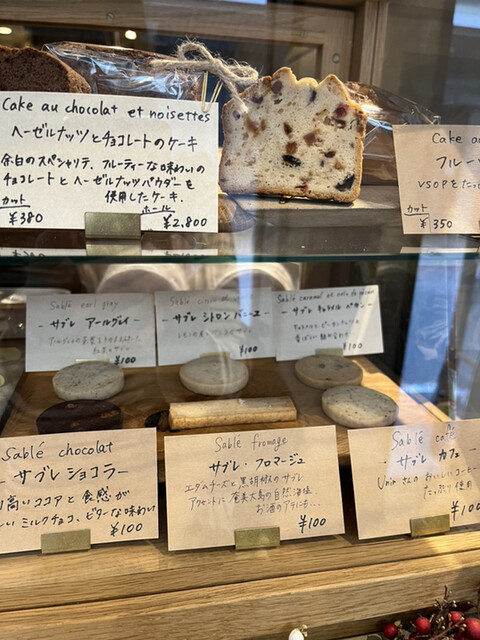 Cake au chocolat et noisettes
ヘーゼルナッツとチョコレートのケーキ
余白のスペシャリテ、フルーティーな味わいの
チョコレートとヘーゼルナッツパウダーを
使用したケーキ.
カット
¥380
ホール
¥2,800
Cake au
フルー
VSOPをたっ
カット
¥350
Sablé earl grey
- サブレ アールグレイ -
紅茶のサブレ
¥100
Sablé
- サブレ シトロン バニーユ -
¥100
Sablé caramel et noix de pécan
- サブレ キャラメル ペカン -
¥100
Sablé chocolat
- サブレ ショコラ -
高いココアと食感が
しいミルクチョコ、ビターな味わい
¥100
Sablé fromage
サブレ・フロマージュ
エダムチーズと黒胡椒のサブレ
アクセントに奄美大島の自然海塩
お酒のアテにも...
¥100
Sablé café
- サブレ カフェ -
Unirさんのおいしいコーヒー
たっぷり使用
¥100